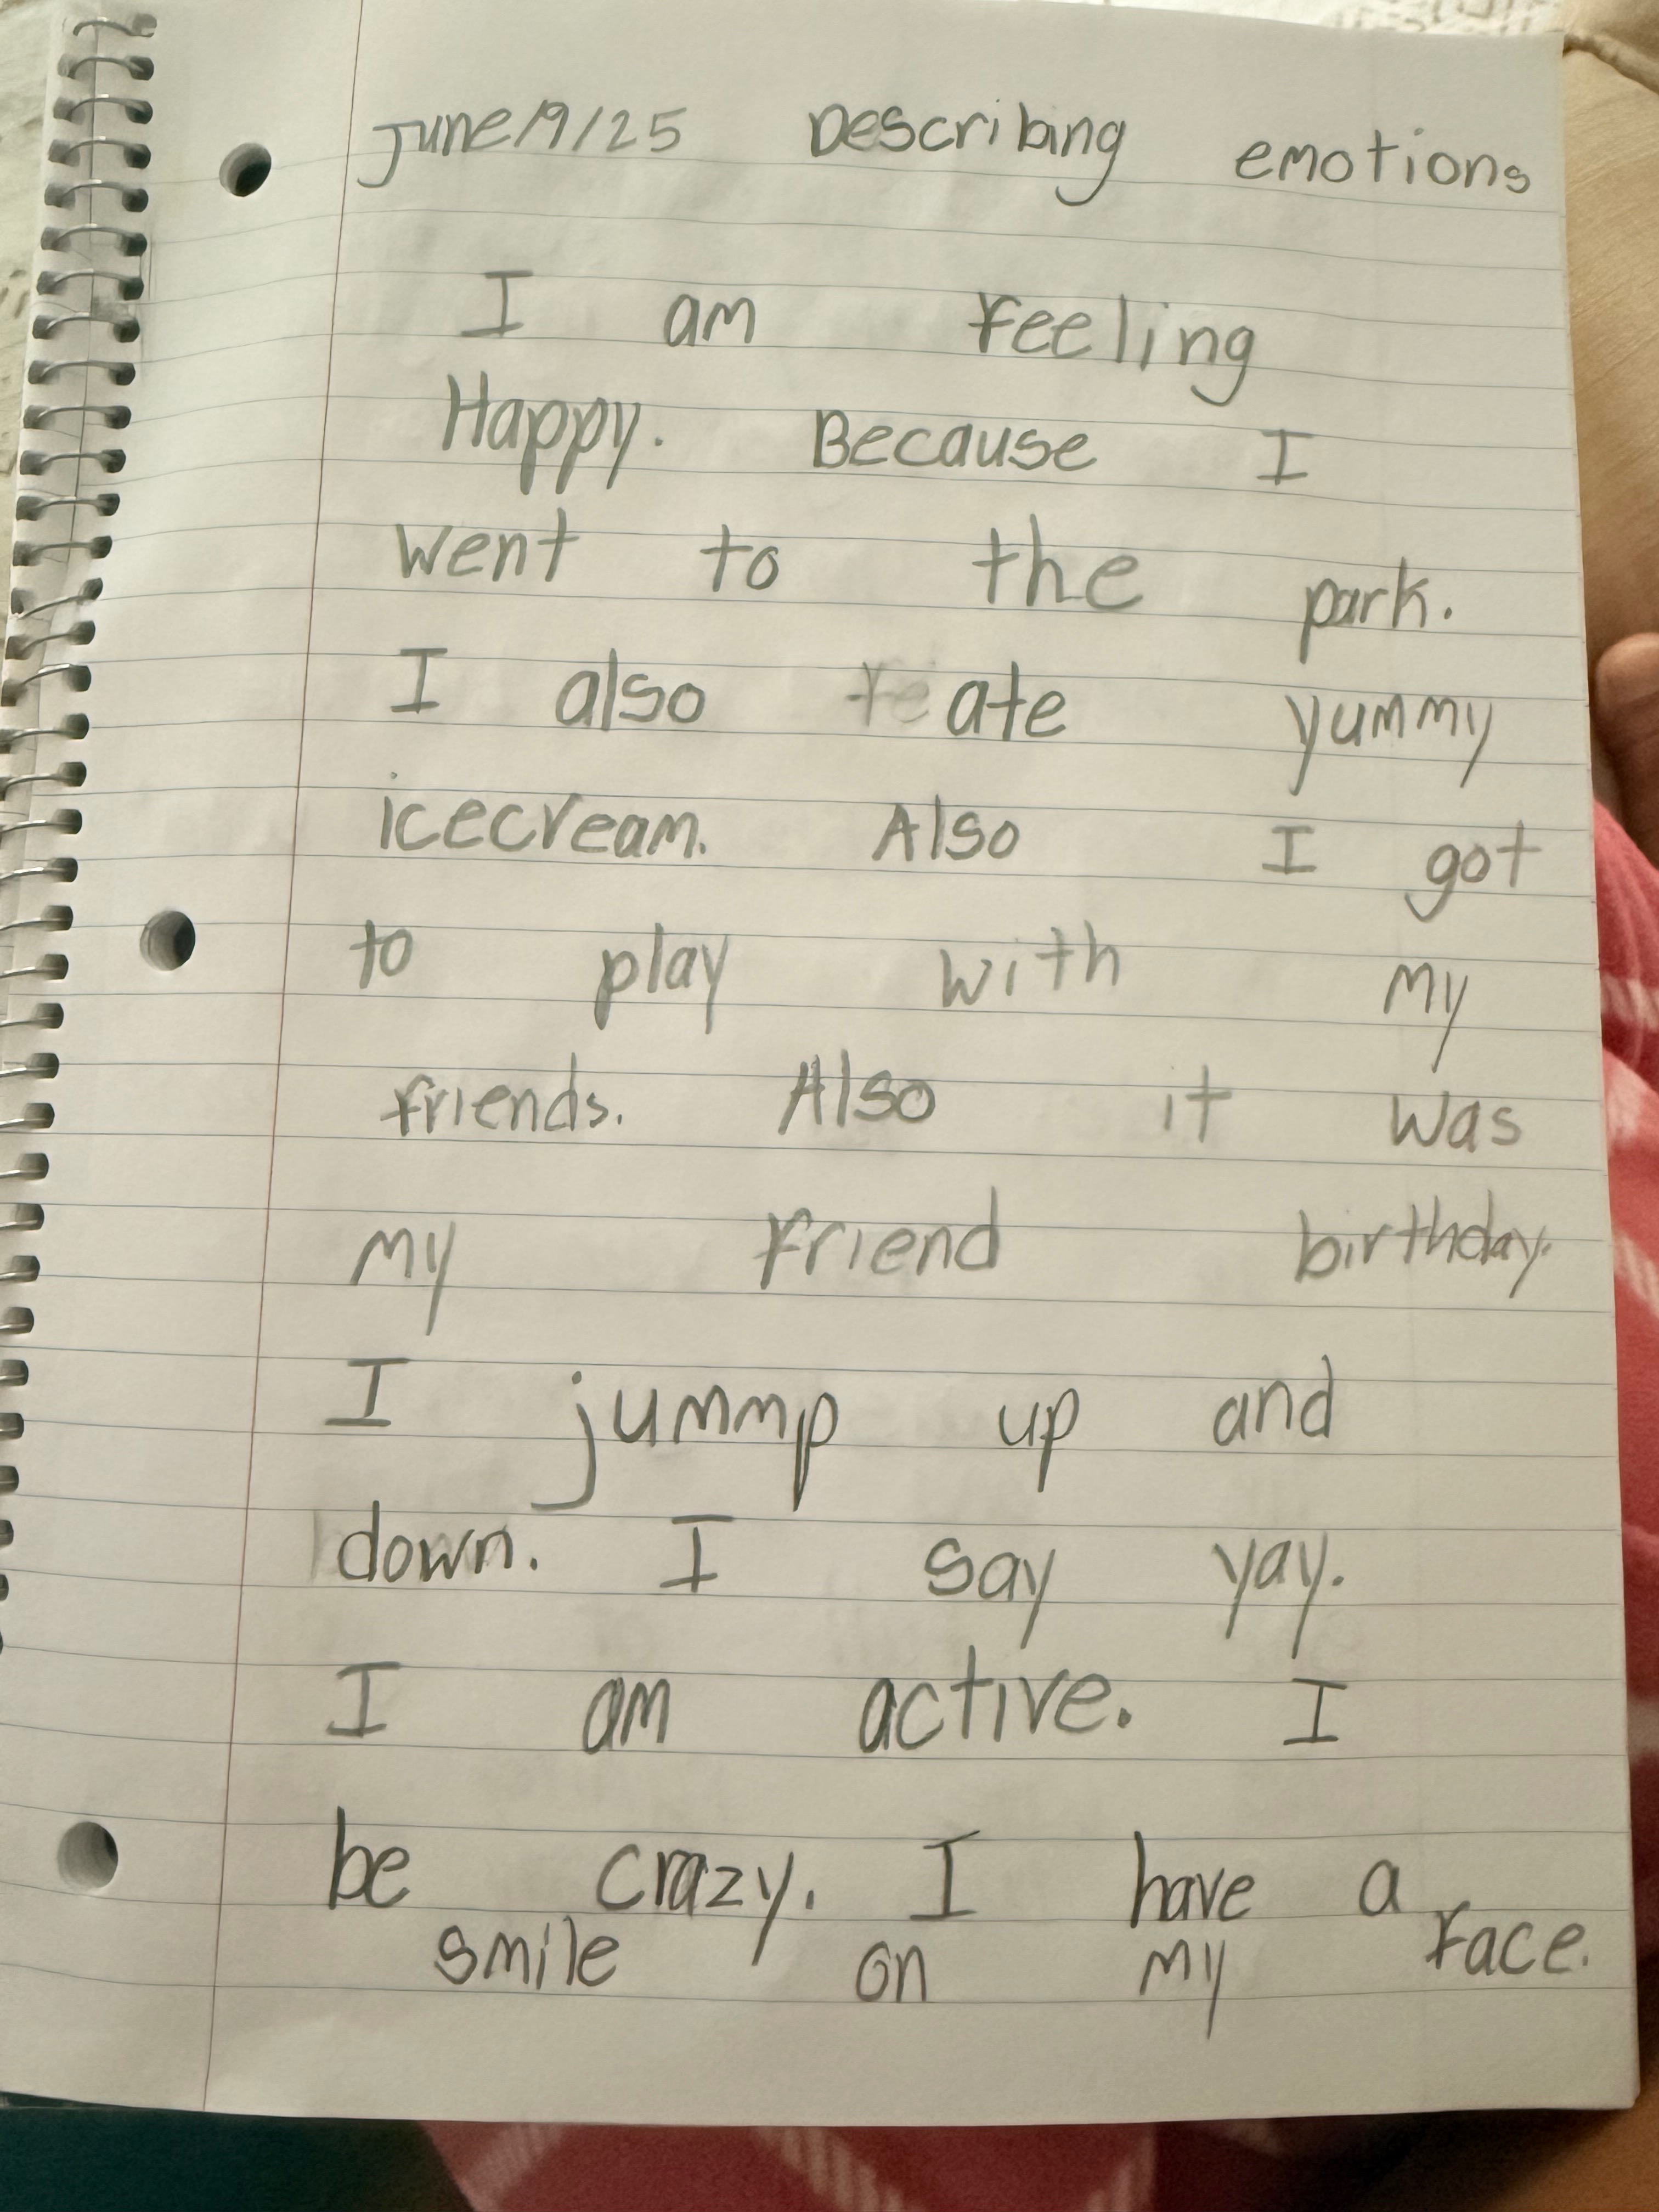 June/9/25 Describing emotions
I am feeling
Happy. Because I
went to the park.
I also ate yummy
icecream. Also I got
to play with my
friends. Also it was
my friend birthday.
I jummp up and
down. I say yay.
I am active. I
be crazy. I have a
smile on my face.